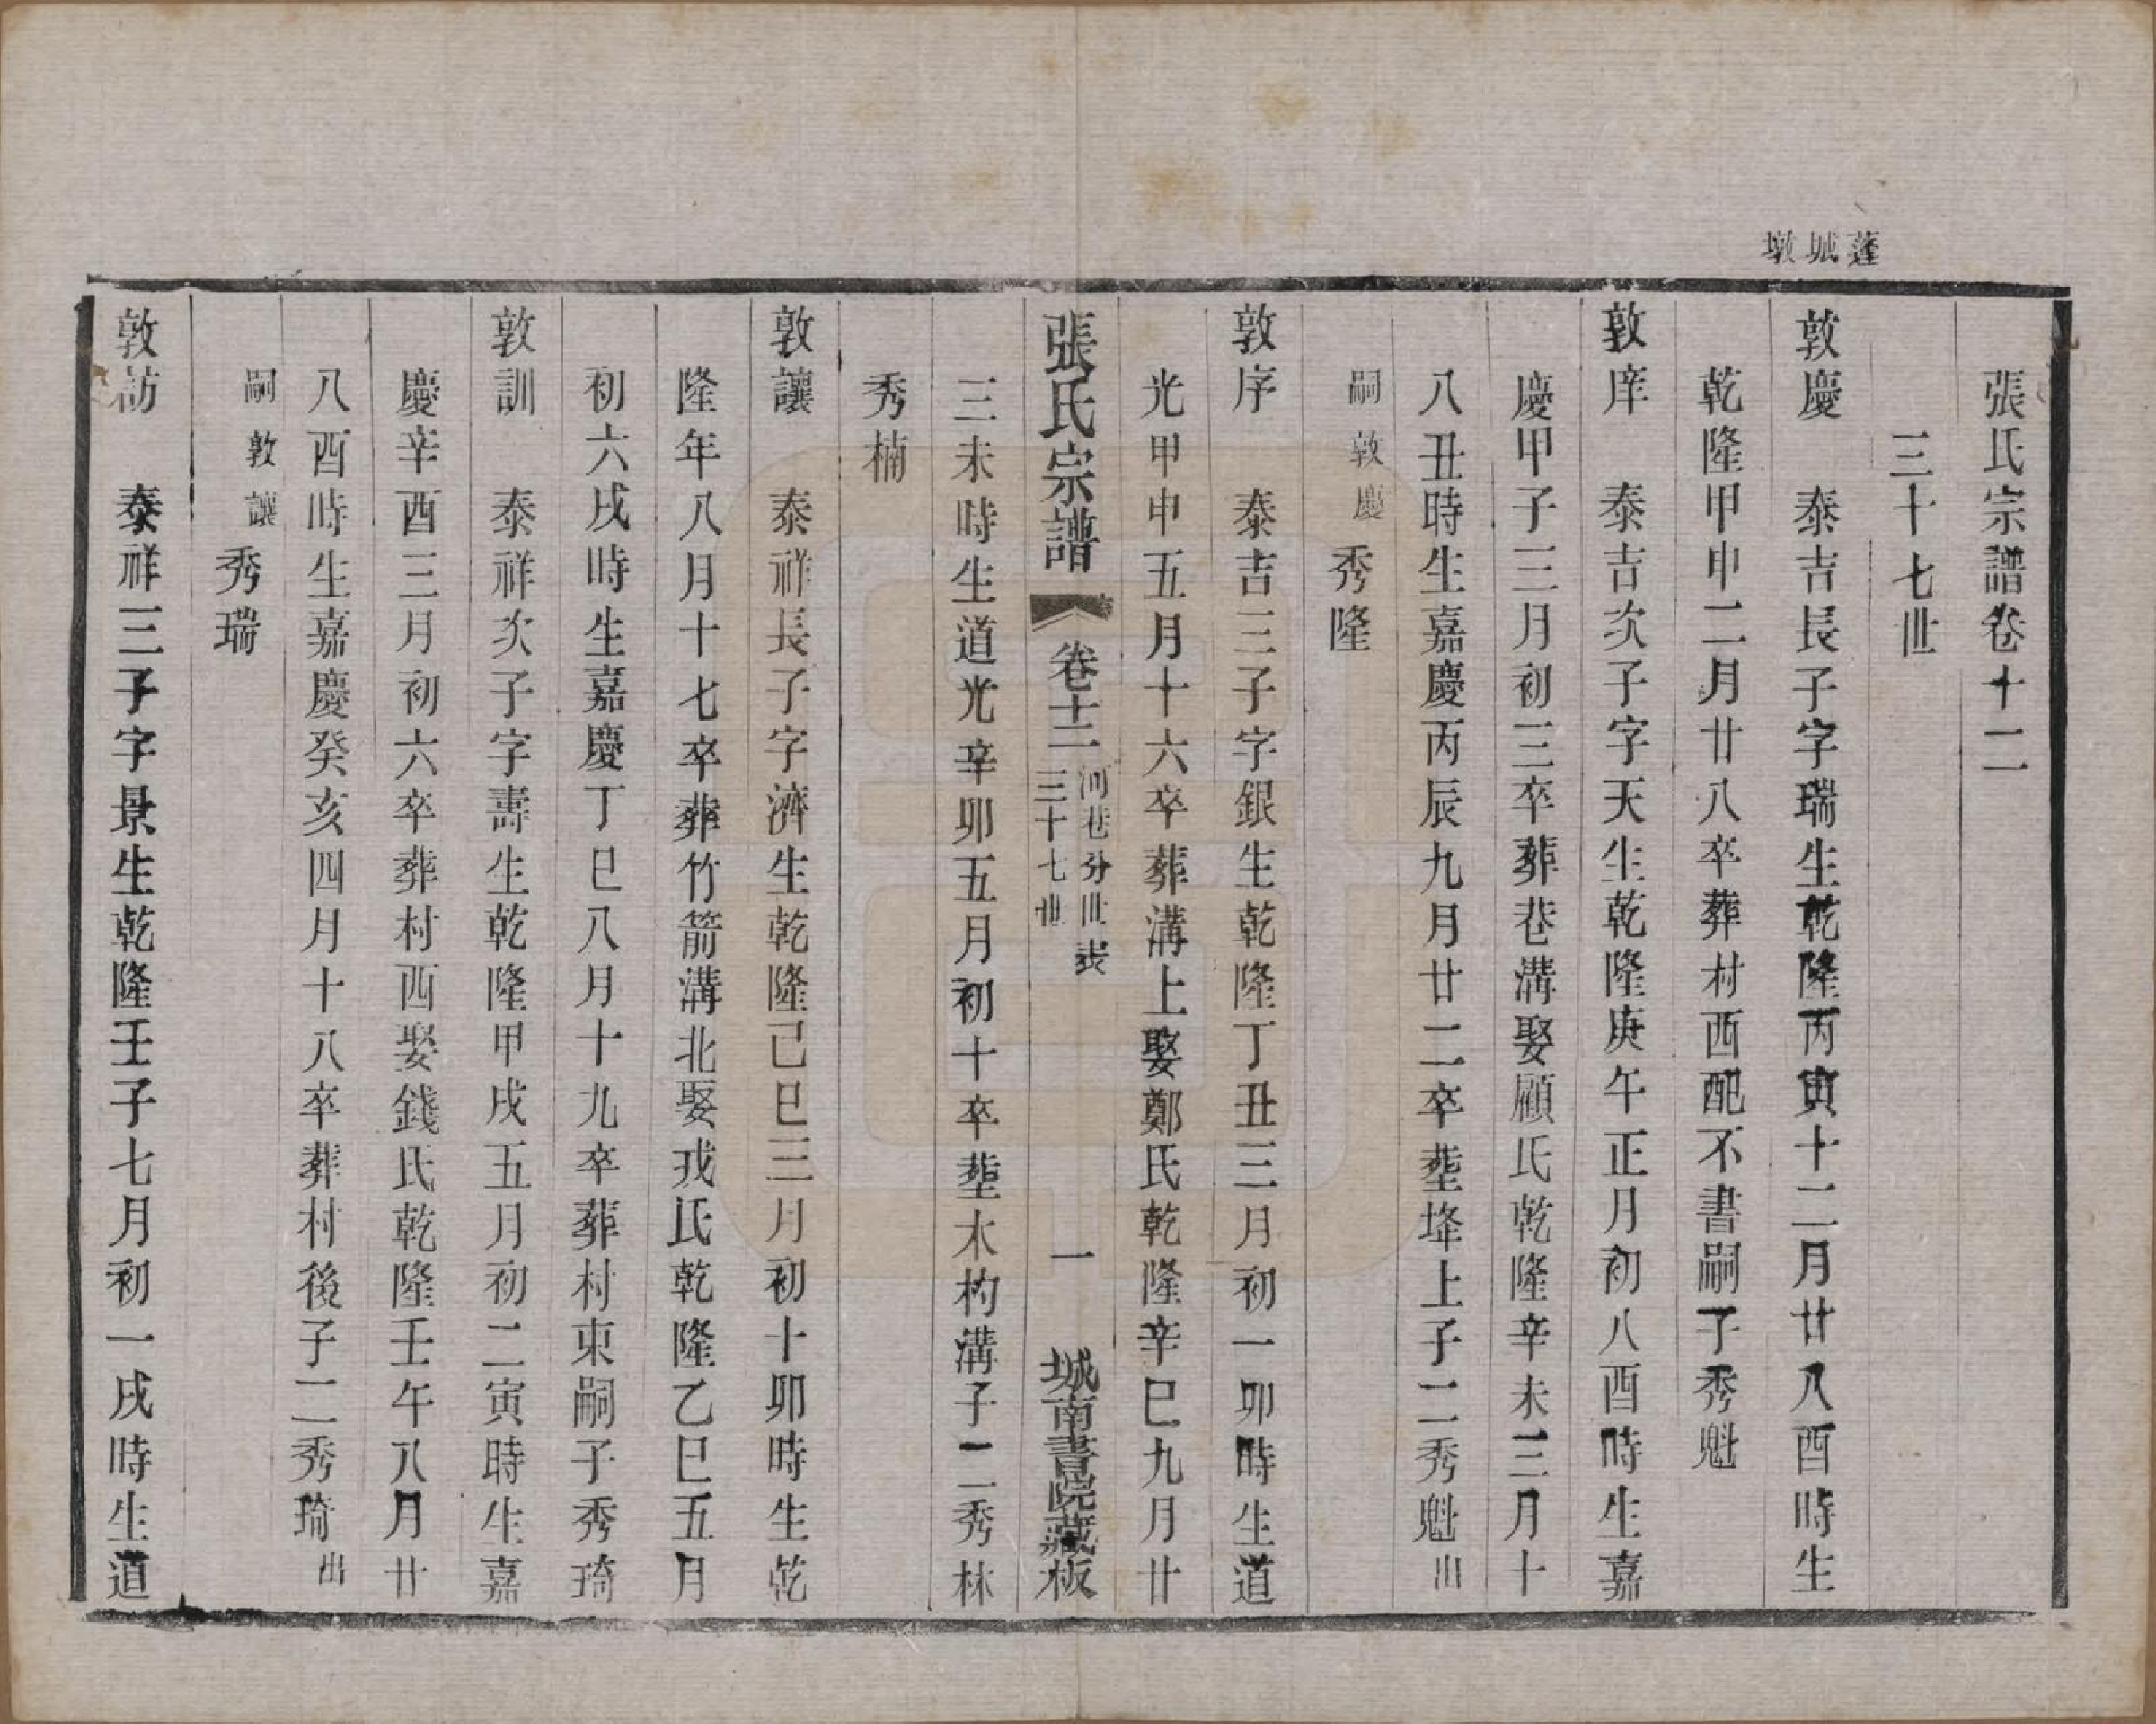 蓬城墩
張氏宗譜卷十二
三十七世
敦慶　泰吉長子字瑞生乾隆丙寅十二月廿八酉時生
乾隆甲申二月廿八卒葬村西配不書嗣子秀魁
敦庠　泰吉次子字天生乾隆庚午正月初八酉時生嘉
慶甲子三月初三卒葬巷溝娶顧氏乾隆辛未三月十
八丑時生嘉慶丙辰九月廿二卒塟埄上子二秀魁出
嗣敦慶秀隆
敦序　泰吉三子字銀生乾隆丁丑三月初一卯時生道
光甲申五月十六卒葬溝上娶鄭氏乾隆辛巳九月廿
張氏宗譜　卷十二　河巷分世表　三十七世　一　城南書院藏板
三未時生道光辛卯五月初十卒塟木杓溝子二秀林
秀楠
敦讓　泰祥長子字濟生乾隆己巳三月初十卯時生乾
隆年八月十七卒葬竹箭溝北娶戎氏乾隆乙巳五月
初六戌時生嘉慶丁巳八月十九卒葬村東嗣子秀琦
敦訓　泰祥次子字壽生乾隆甲戌五月初二寅時生嘉
慶辛酉三月初六卒葬村西娶錢氏乾隆壬午八月廿
八酉時生嘉慶癸亥四月十八卒葬村後子二秀琦出
嗣敦讓秀瑞
敦訪　泰祥三子字景生乾隆壬子七月初一戌時生道